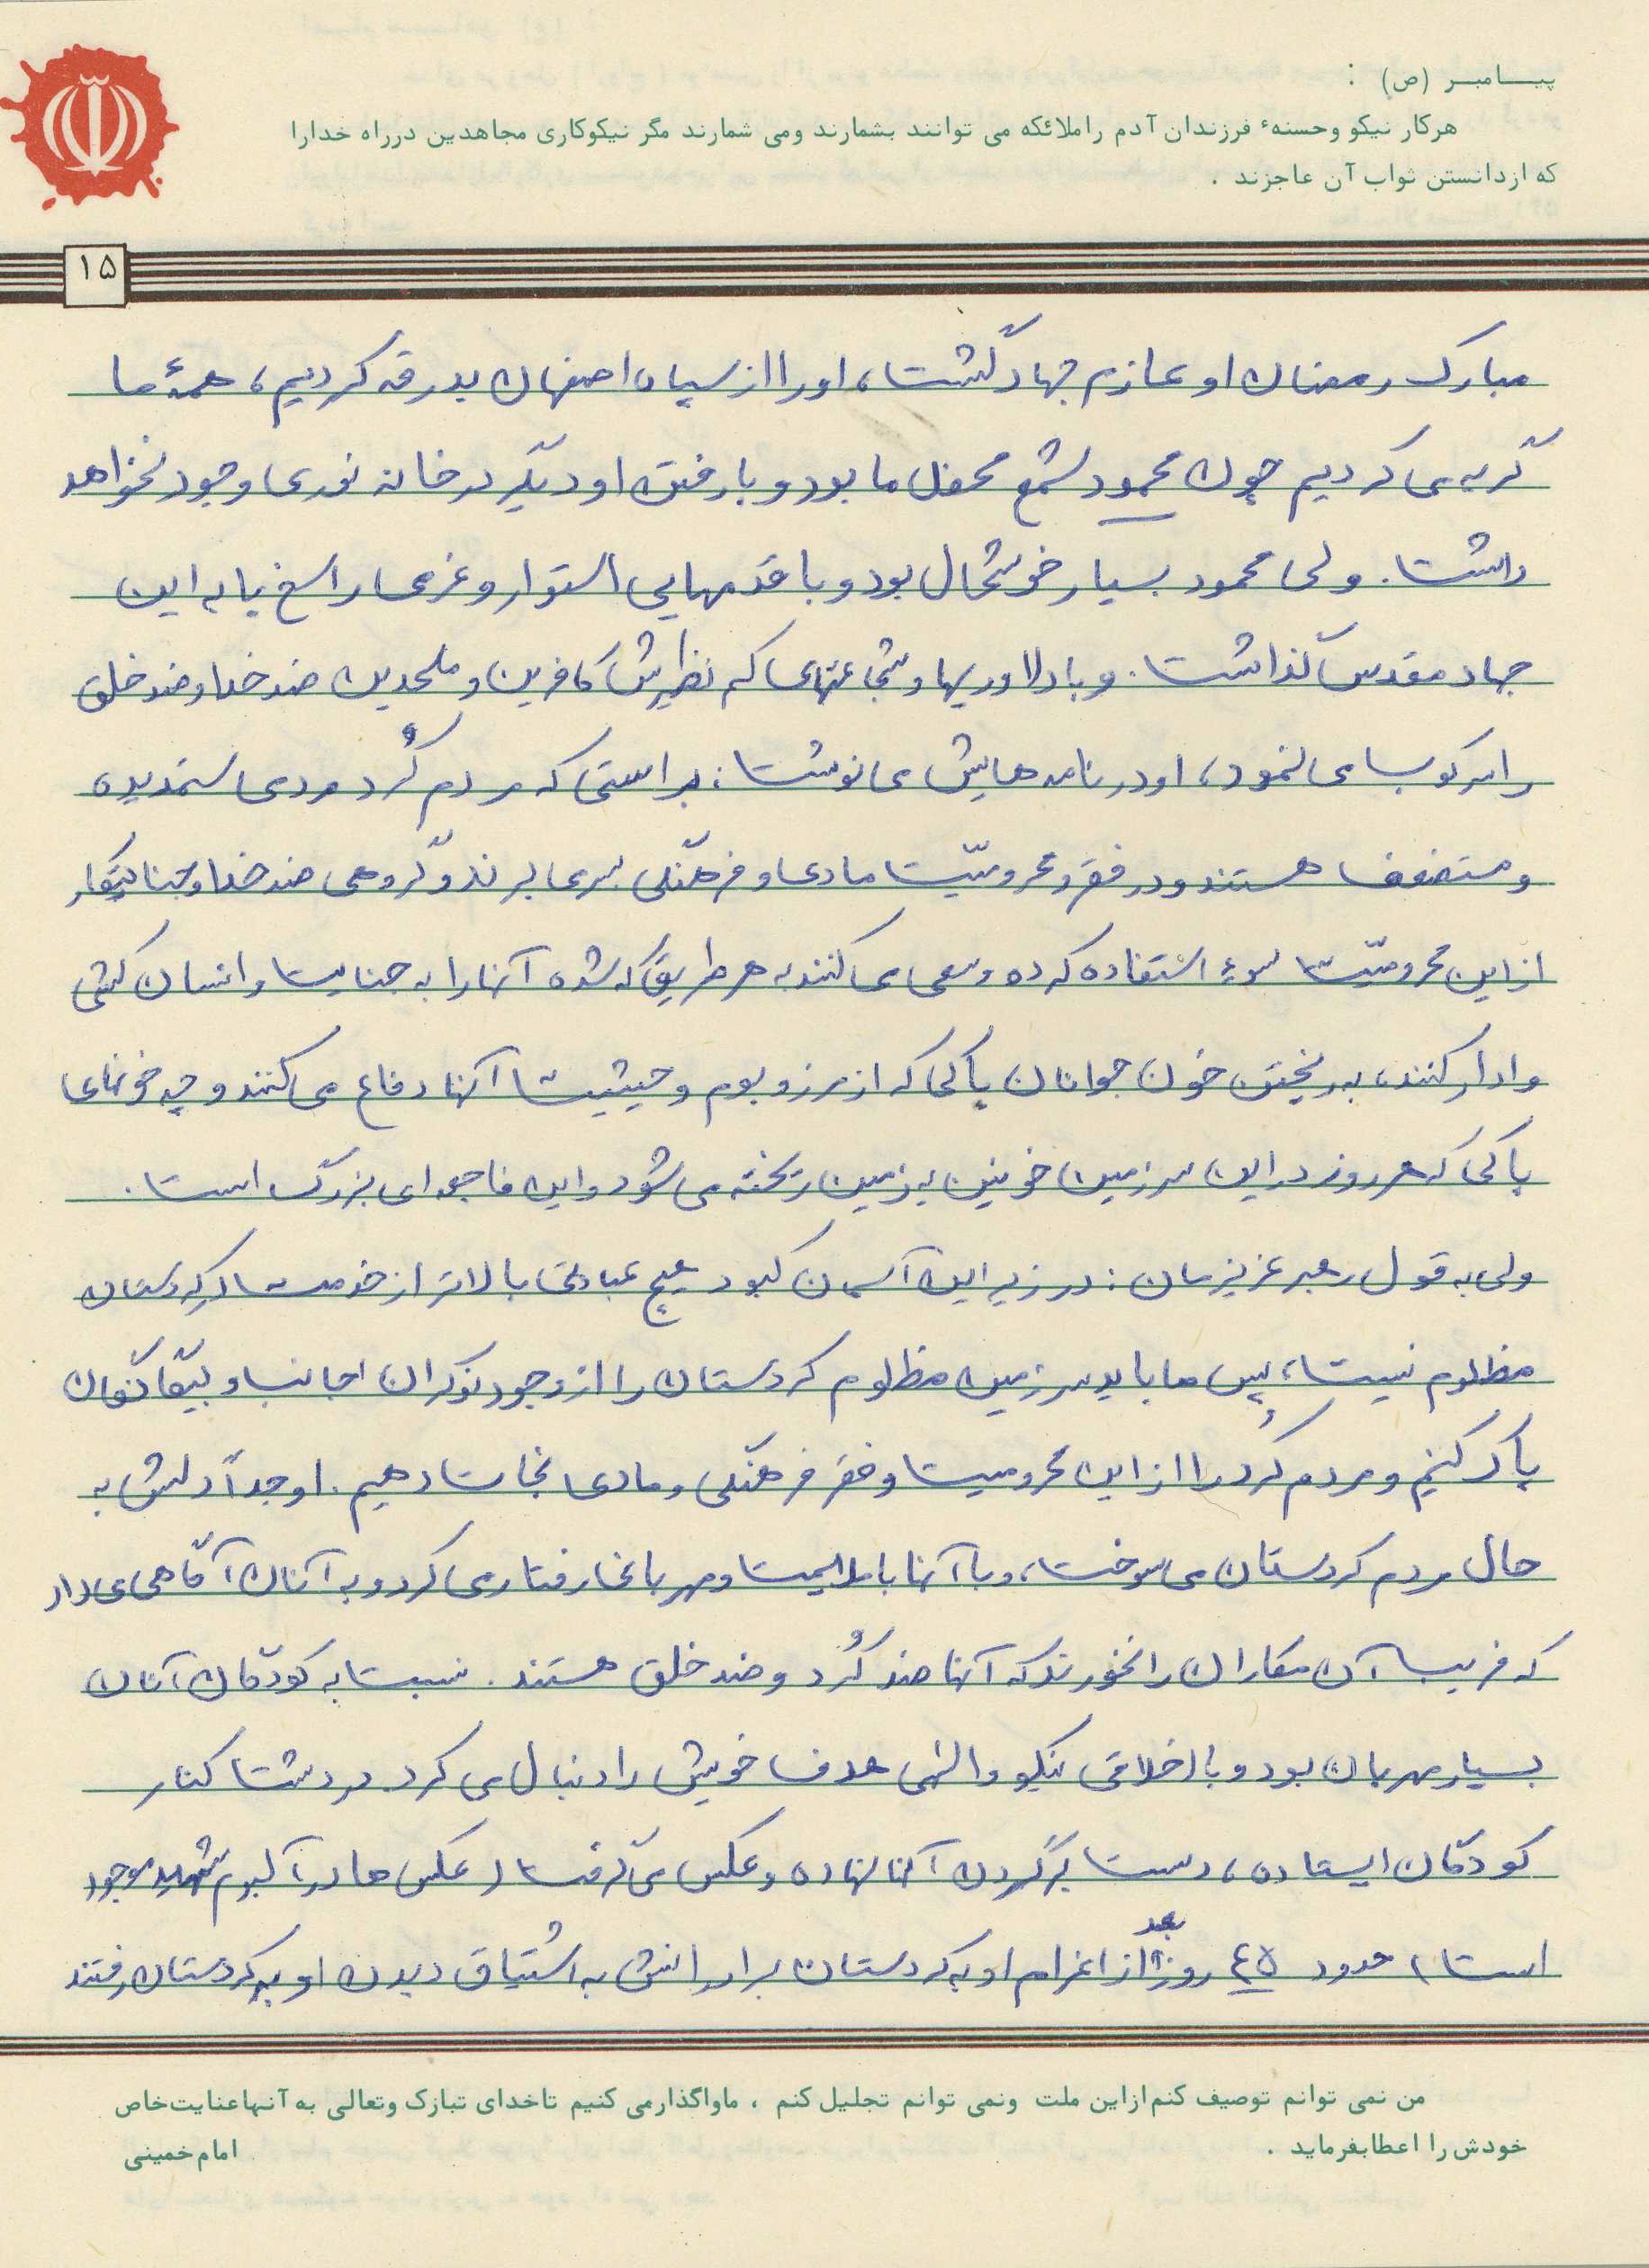 پیـــامبـــر (ص) :
هرکار نیکو وحسنهٔ فرزندان آدم راملائکه می توانند بشمارند ومی شمارند مگر نیکوکاری مجاهدین درراه خدارا
که ازدانستن ثواب آن عاجزند .
۱۵
مبارک رمضان او عازم جهاد گشت، او را از سپاه اصفهان بدرقه کردیم، همهٔ ما
گریه می کردیم چون محمود شمع محفل ما بود و با رفتن او دیگر در خانه نوری وجود نخواهد
داشت. ولی محمود بسیار خوشحال بود و با قدمهایی استوار و عزمی راسخ پا به این
جهاد مقدس گذاشت. و با دلاوریها و شجاعتهای کم نظیرش کافرین و ملحدین ضد خدا و ضد خلق
را سرکوب می نمود، او در نامه هایش می نوشت: براستی که مردم کُرد مردمی ستمدیده
و مستضعف هستند و در فقر و محرومیّت مادی و فرهنگی بسر می برند و گروهی ضد خدا و جنایتکار
از این محرومیّت سوء استفاده کرده و سعی می کنند به هر طریق که شده آنها را به جنایت و انسان کشی
وادار کنند، به ریختن خون جوانان پاکی که از مرز و بوم و حیثیت آنها دفاع می کنند و چه خونهای
پاکی که هر روز در این سرزمین خونین به زمین ریخته می شود و این فاجعه ای بزرگ است.
ولی به قول رهبر عزیزمان: در زیر این آسمان کبود هیچ عبادتی بالاتر از خدمت در کردستان
مظلوم نیست، پس ما باید سرزمین مظلوم کردستان را از وجود نوکران اجانب و بیگانگان
پاک کنیم و مردم کُرد را از این محرومیت و فقر فرهنگی و مادی نجات دهیم. او جداً دلش به
حال مردم کردستان می سوخت، و با آنها با ملایمت و مهربانی رفتار می کرد و به آنان آگاهی می داد
که فریب آن مکاران را نخورند که آنها ضد کُرد و ضد خلق هستند. نسبت به کودکان آنان
بسیار مهربان بود و با اخلاقی نیکو و الهی هدف خویش را دنبال می کرد. در دشت کنار
کودکان ایستاده، دست بر گردن آنها نهاده و عکس می گرفت (عکس ها در آلبوم شهید موجود
است) حدود ٤٥ روز بعد از اعزام او به کردستان برادرانش به اشتیاق دیدن او به کردستان رفتند
من نمی توانم توصیف کنم ازاین ملت ونمی توانم تجلیل کنم ، ماواگذارمی کنیم تاخدای تبارک وتعالی به آنهاعنایت خاص
خودش را اعطابفرماید . امام خمینی